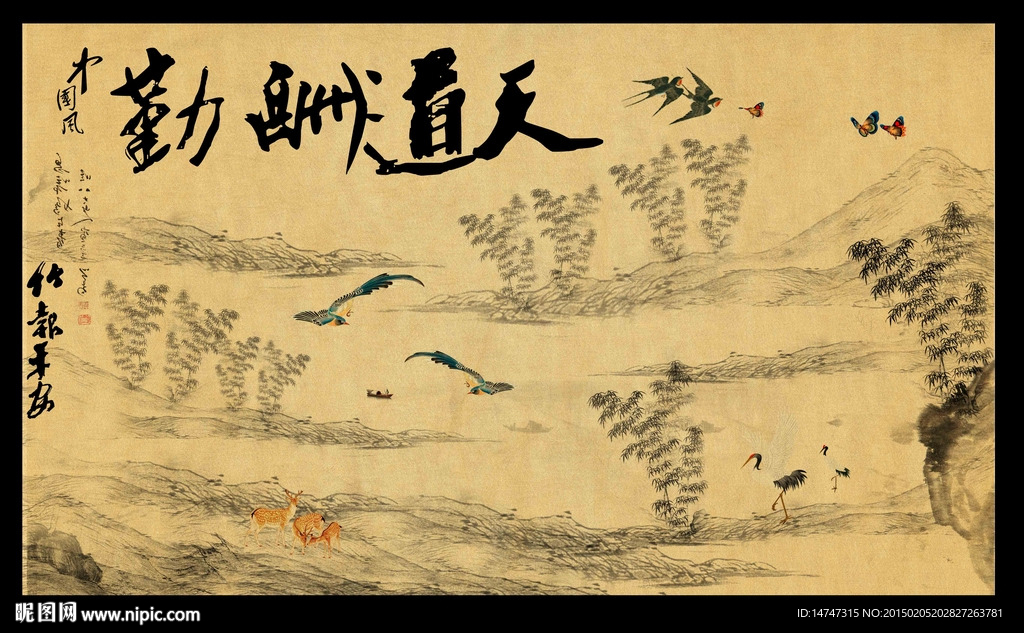 天道酬勤
中國风
竹報平安
昵图网 www.nipic.com
ID:14747315 NO:20150205202827263781